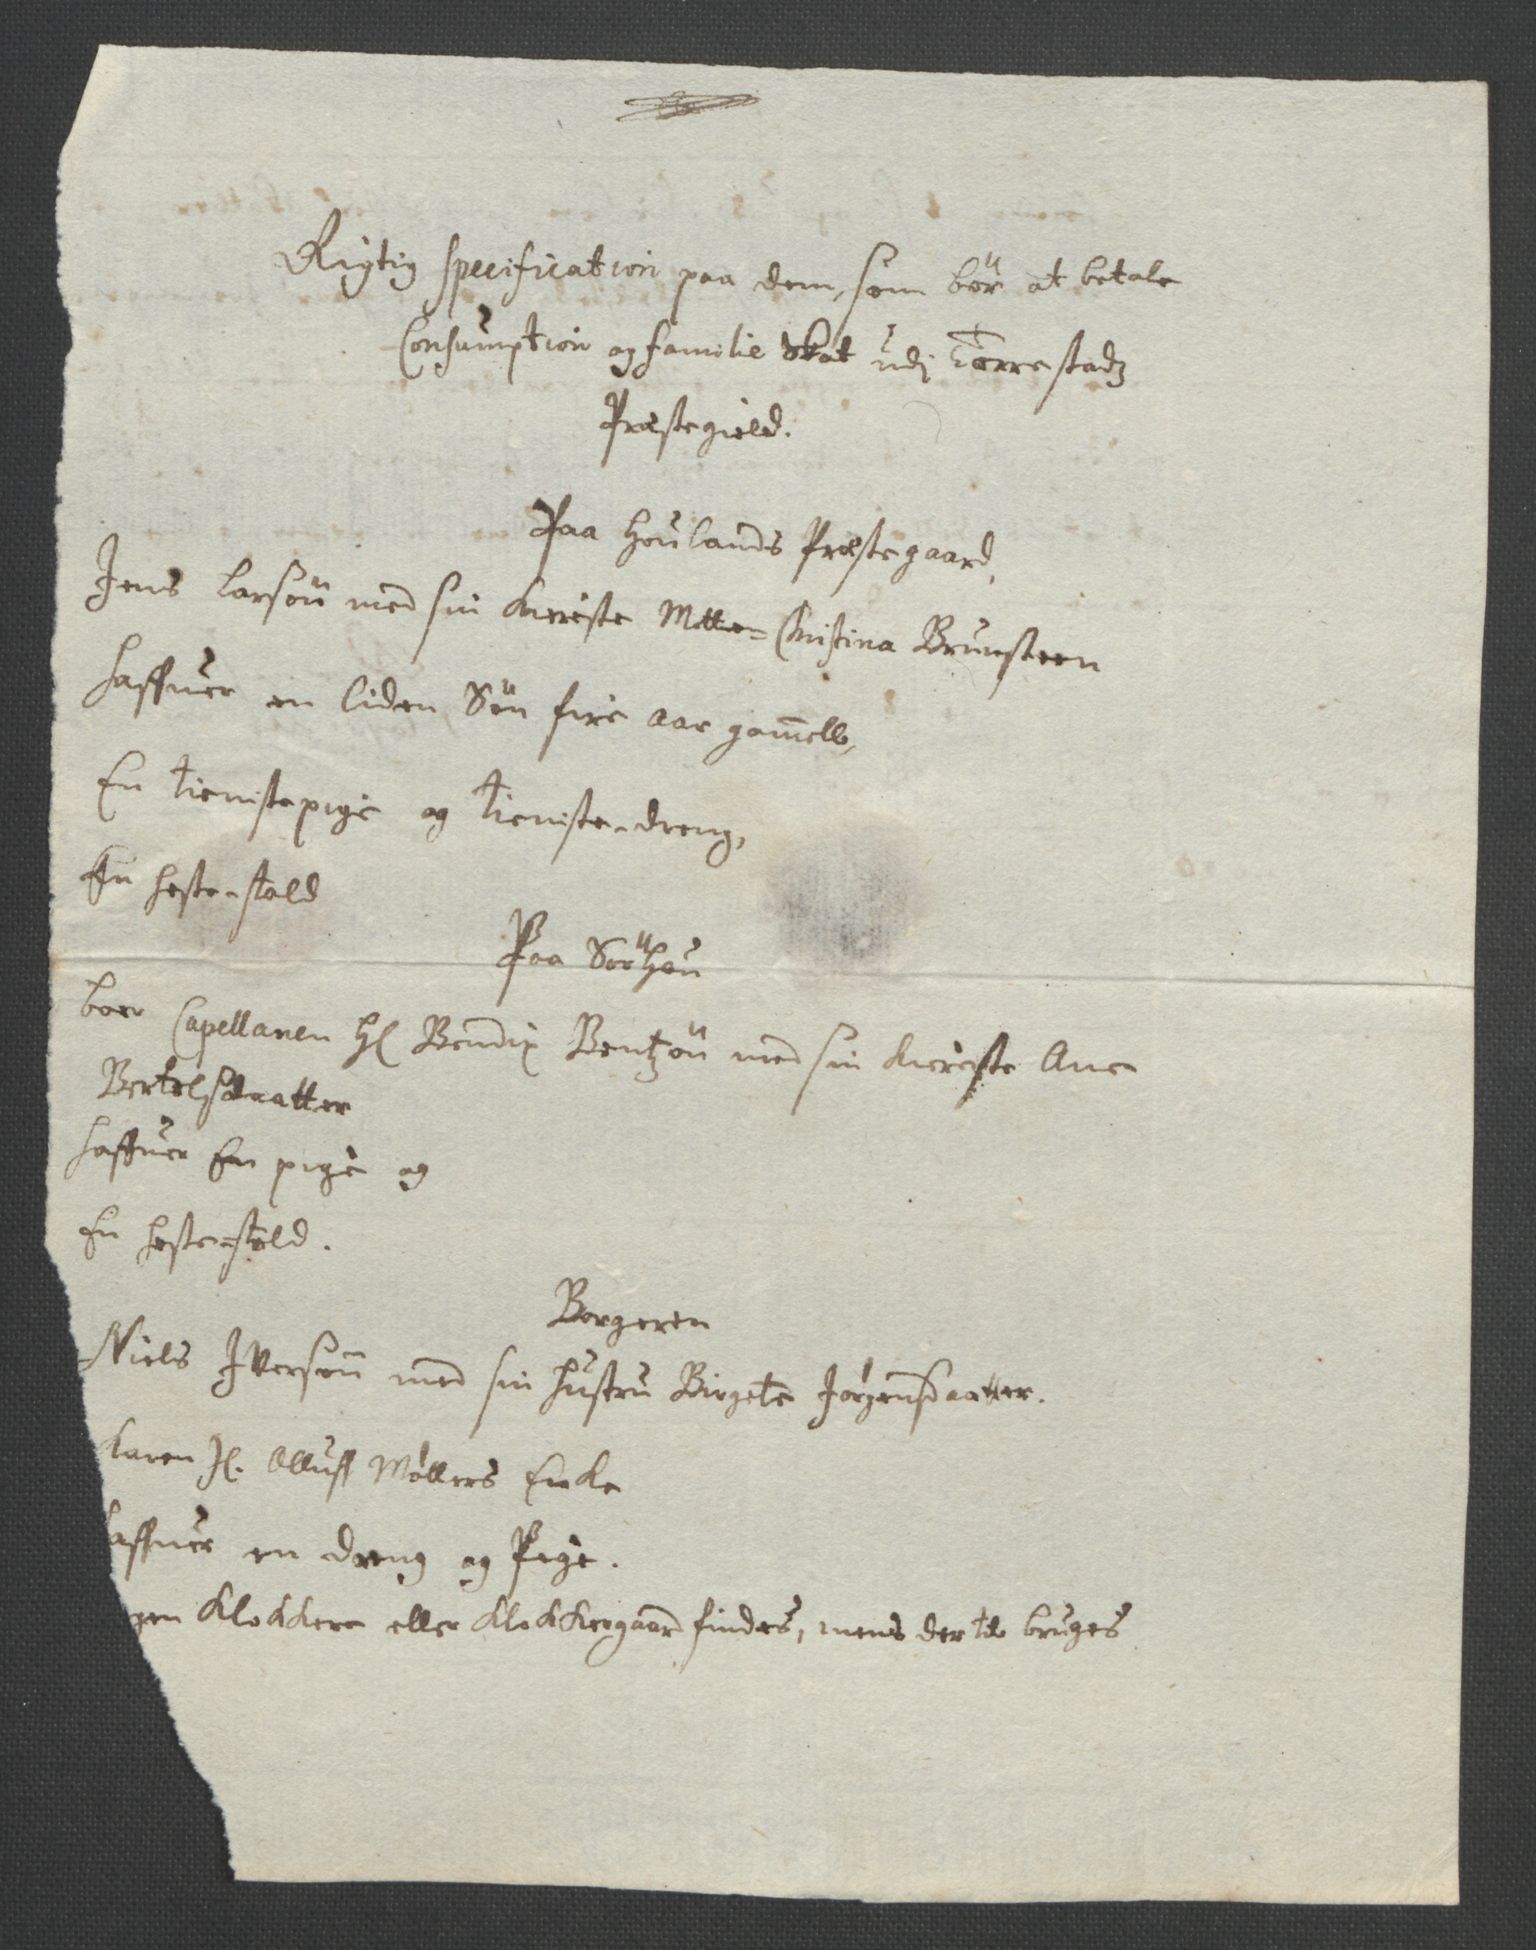 Rigtig specification paa dem, som bör at betale
Consumption og familie skat udj Törrestadz
Præstegield.
Paa Houlands Præstegaard,
Jens Larsön med sin Kiereste Mette- Christina Brunsteen
haffuer en liden Sön fire aar gamell,
En tienistepige og tieniste-dreng,
En heste-stald
Paa Sörhou
boer Capellanen Hl Bendix Bentzön med sin Kiereste Ane
Bertelsdaatter
haffuer En pige og
En heste-stald.
Borgeren
Niels Iversön med sin hustru Birgete Jörgensdaatter.
Karen Sl. Olluff Möllers Encke
haffuer en dreng og Pige.
gen Klokkere eller Klokkergaard findes, mens der til bruges